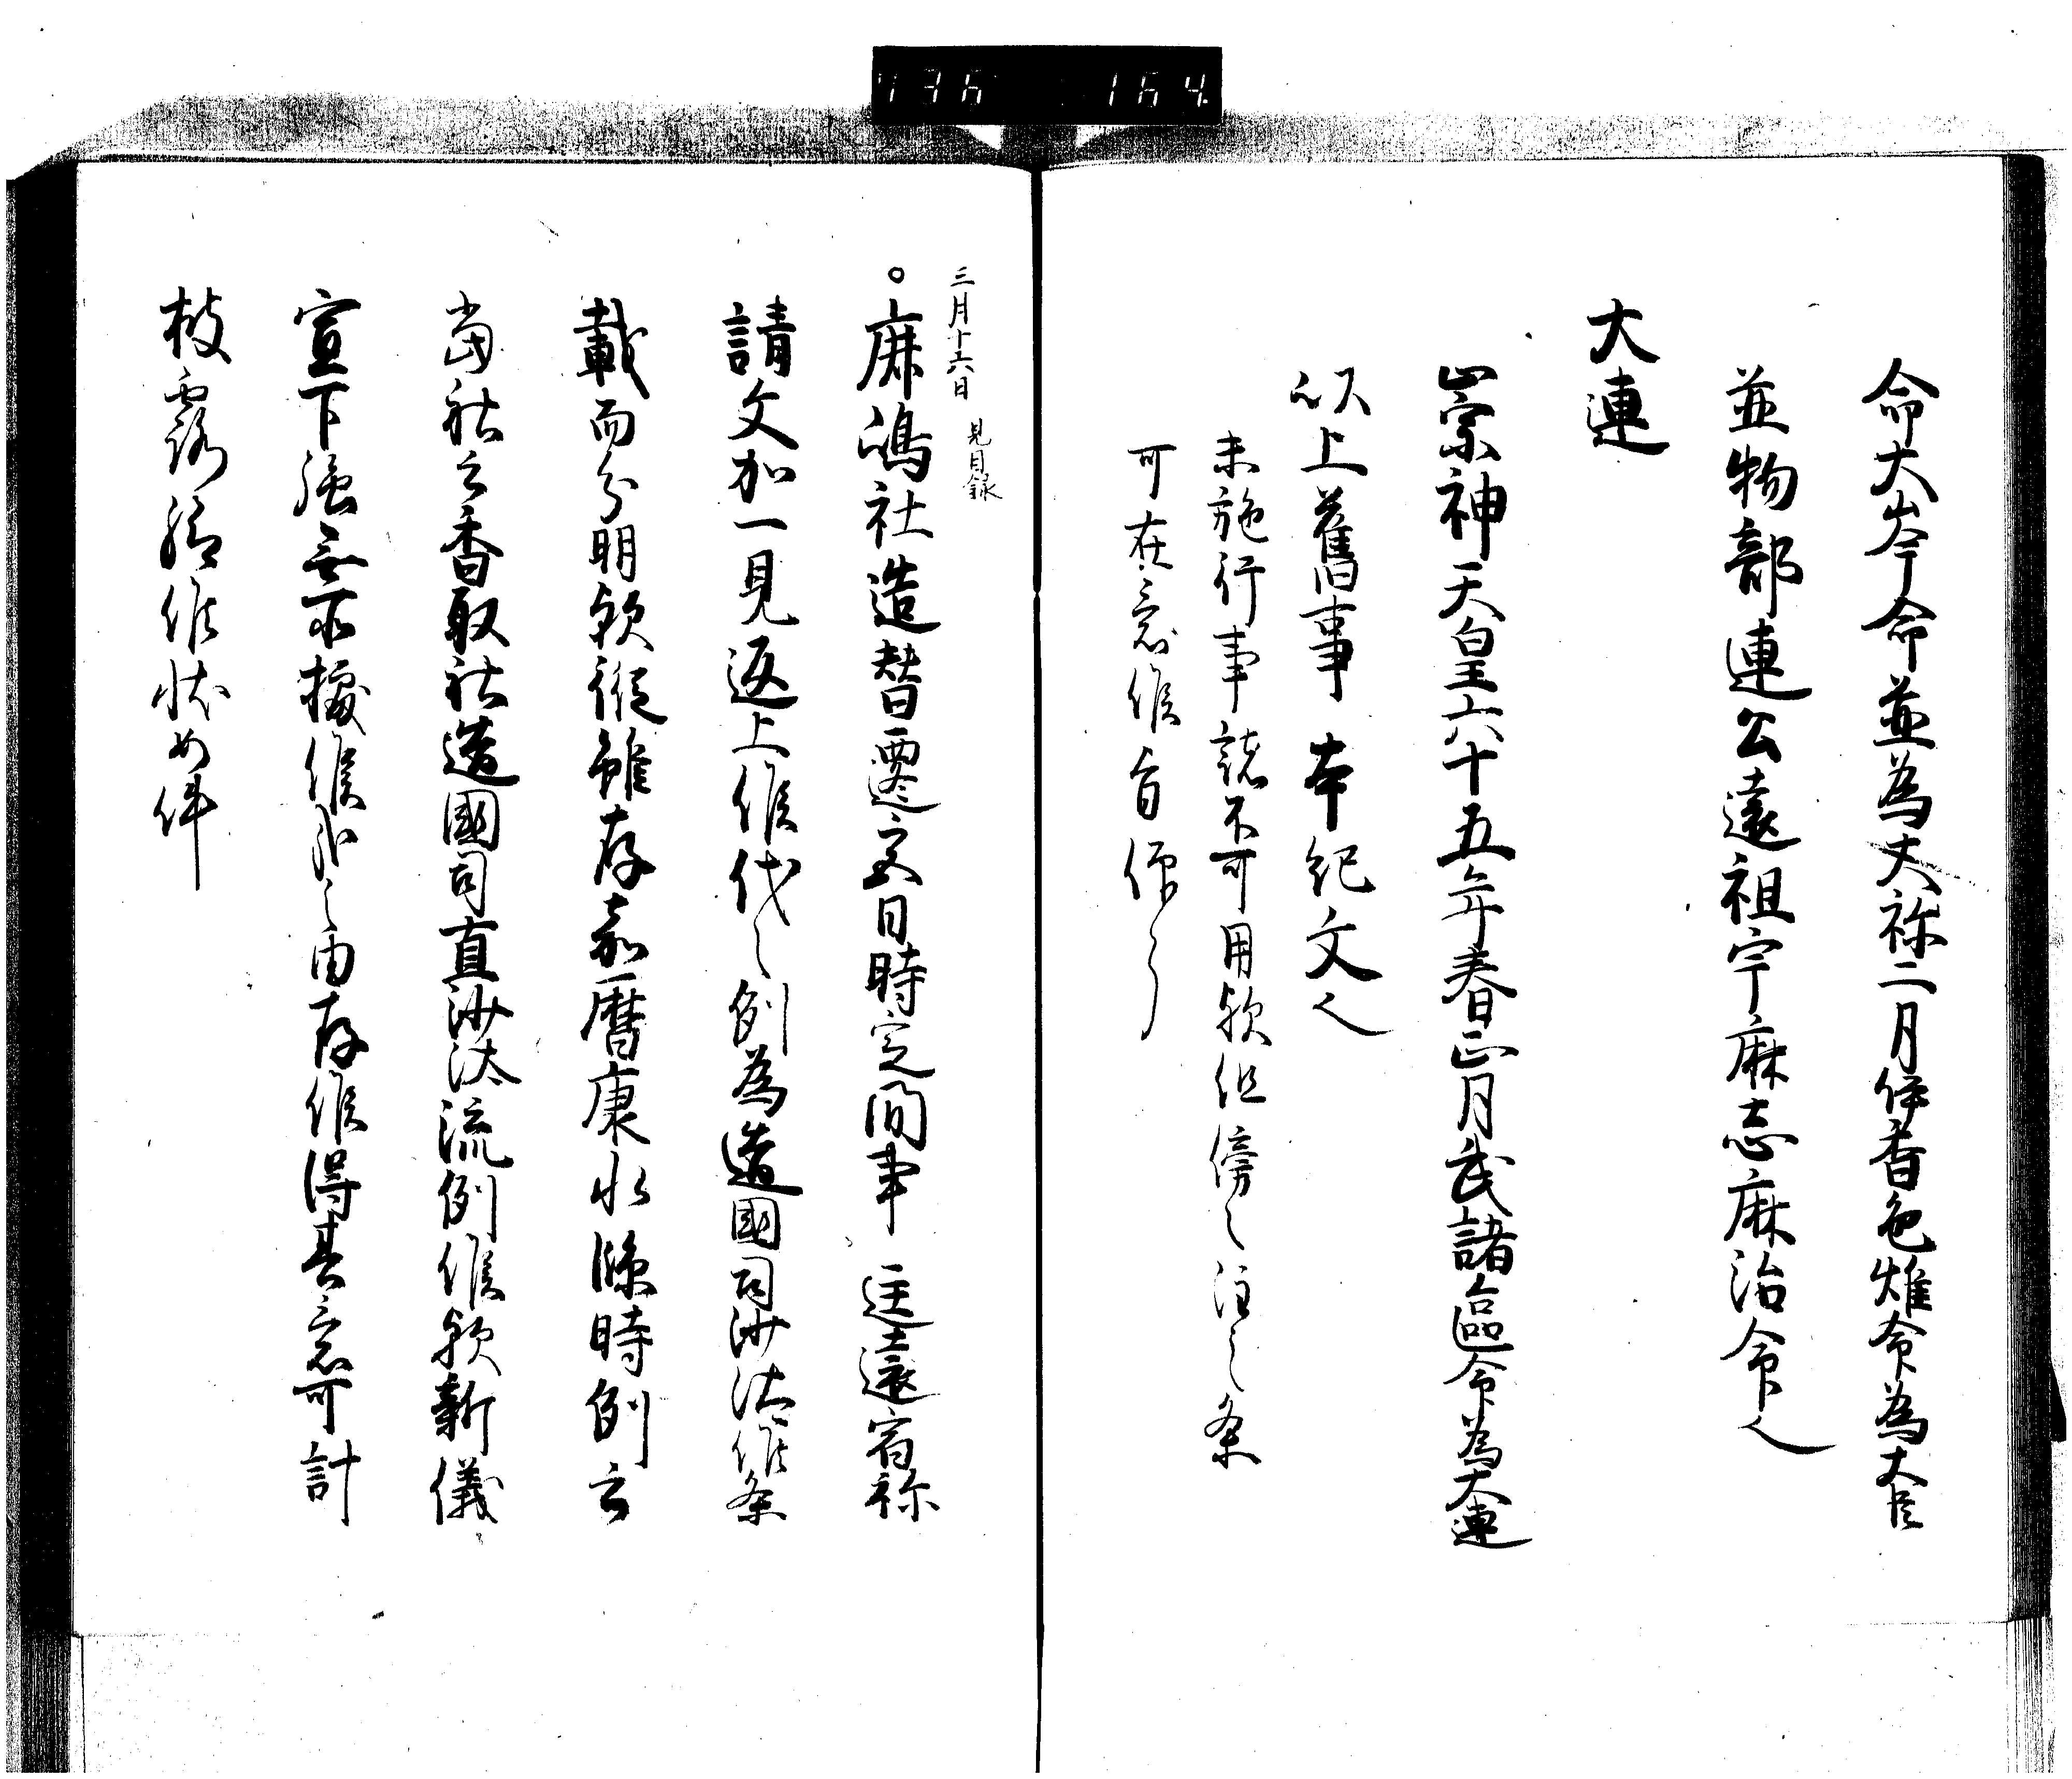 736 164
命大岺命並為大祢二月伊香色雄命為大臣
並物部連公遠祖宇麻志麻治命〻
大連
崇神天皇六十五年春正月武諸隅命為大連
以上舊事本紀文〻
未施行事訖不可用歟但傍〻注之条
可在意候旨
三月十六日 見目録
○麻嶋社造替遷宮日時定間事 匡遠宿祢
請文加一見返上候代々例為造國司沙汰候条
載而分明歟縦雖存嘉暦康永臨時例云
当社云香取社造國司直沙汰流例候歟新儀
宣下強無所據候哉之由存候得其意可計
披露給候状如件